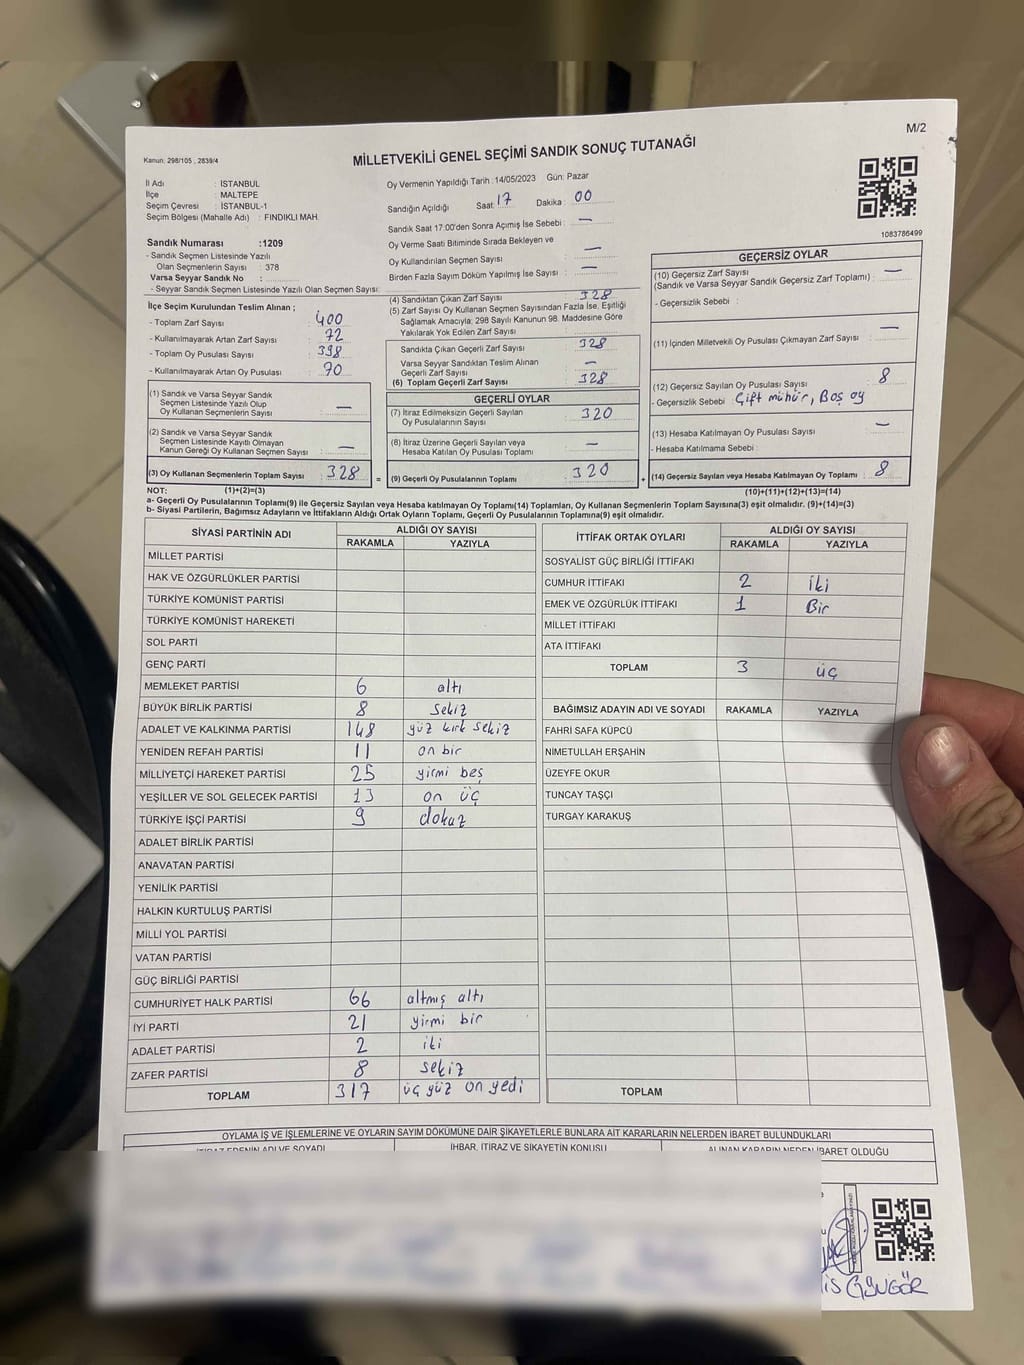 M/2
Kanun: 298/105 , 2839/4
MİLLETVEKİLİ GENEL SEÇİMİ SANDIK SONUÇ TUTANAĞI
İl Adı : İSTANBUL
İlçe : MALTEPE
Seçim Çevresi : İSTANBUL-1
Seçim Bölgesi (Mahalle Adı) : FINDIKLI MAH.
Oy Vermenin Yapıldığı Tarih : 14/05/2023 Gün: Pazar
Sandığın Açıldığı Saat : 17 Dakika : 00
Sandık Saat 17:00'den Sonra Açılmış İse Sebebi : —
Oy Verme Saati Bitiminde Sırada Bekleyen ve
Oy Kullandırılan Seçmen Sayısı : —
Birden Fazla Sayım Döküm Yapılmış İse Sayısı : —
1083786499
Sandık Numarası :1209
- Sandık Seçmen Listesinde Yazılı
Olan Seçmenlerin Sayısı : 378
Varsa Seyyar Sandık No :
- Seyyar Sandık Seçmen Listesinde Yazılı Olan Seçmen Sayısı:
İlçe Seçim Kurulundan Teslim Alınan ;
- Toplam Zarf Sayısı : 400
- Kullanılmayarak Artan Zarf Sayısı : 72
- Toplam Oy Pusulası Sayısı : 398
- Kullanılmayarak Artan Oy Pusulası : 70
(1) Sandık ve Varsa Seyyar Sandık
Seçmen Listesinde Yazılı Olup
Oy Kullanan Seçmenlerin Sayısı : —
(2) Sandık ve Varsa Seyyar Sandık
Seçmen Listesinde Kayıtlı Olmayan
Kanun Gereği Oy Kullanan Seçmen Sayısı : —
(3) Oy Kullanan Seçmenlerin Toplam Sayısı : 328
(4) Sandıktan Çıkan Zarf Sayısı : 328
(5) Zarf Sayısı Oy Kullanan Seçmen Sayısından Fazla İse, Eşitliği
Sağlamak Amacıyla; 298 Sayılı Kanunun 98. Maddesine Göre
Yakılarak Yok Edilen Zarf Sayısı :
Sandıkta Çıkan Geçerli Zarf Sayısı : 328
Varsa Seyyar Sandıktan Teslim Alınan
Geçerli Zarf Sayısı : —
(6) Toplam Geçerli Zarf Sayısı : 328
GEÇERLİ OYLAR
(7) İtiraz Edilmeksizin Geçerli Sayılan
Oy Pusulalarının Sayısı : 320
(8) İtiraz Üzerine Geçerli Sayılan veya
Hesaba Katılan Oy Pusulası Toplamı : —
= (9) Geçerli Oy Pusulalarının Toplamı : 320
GEÇERSİZ OYLAR
(10) Geçersiz Zarf Sayısı
(Sandık ve Varsa Seyyar Sandık Geçersiz Zarf Toplamı) : —
- Geçersizlik Sebebi :
(11) İçinden Milletvekili Oy Pusulası Çıkmayan Zarf Sayısı : —
(12) Geçersiz Sayılan Oy Pusulası Sayısı : 8
- Geçersizlik Sebebi : Çift mühür, Boş oy
(13) Hesaba Katılmayan Oy Pusulası Sayısı : —
- Hesaba Katılmama Sebebi :
+ (14) Geçersiz Sayılan veya Hesaba Katılmayan Oy Toplamı : 8
NOT: (1)+(2)=(3)
(10)+(11)+(12)+(13)=(14)
a- Geçerli Oy Pusulalarının Toplamı(9) ile Geçersiz Sayılan veya Hesaba katılmayan Oy Toplamı(14) Toplamları, Oy Kullanan Seçmenlerin Toplam Sayısına(3) eşit olmalıdır. (9)+(14)=(3)
b- Siyasi Partilerin, Bağımsız Adayların ve İttifakların Aldığı Ortak Oyların Toplamı, Geçerli Oy Pusulalarının Toplamına(9) eşit olmalıdır.
SİYASİ PARTİNİN ADI ALDIĞI OY SAYISI
RAKAMLA YAZIYLA
MİLLET PARTİSİ
HAK VE ÖZGÜRLÜKLER PARTİSİ
TÜRKİYE KOMÜNİST PARTİSİ
TÜRKİYE KOMÜNİST HAREKETİ
SOL PARTİ
GENÇ PARTİ
MEMLEKET PARTİSİ 6 altı
BÜYÜK BİRLİK PARTİSİ 8 sekiz
ADALET VE KALKINMA PARTİSİ 148 yüz kırk sekiz
YENİDEN REFAH PARTİSİ 11 on bir
MİLLİYETÇİ HAREKET PARTİSİ 25 yirmi beş
YEŞİLLER VE SOL GELECEK PARTİSİ 13 on üç
TÜRKİYE İŞÇİ PARTİSİ 9 dokuz
ADALET BİRLİK PARTİSİ
ANAVATAN PARTİSİ
YENİLİK PARTİSİ
HALKIN KURTULUŞ PARTİSİ
MİLLİ YOL PARTİSİ
VATAN PARTİSİ
GÜÇ BİRLİĞİ PARTİSİ
CUMHURİYET HALK PARTİSİ 66 altmış altı
İYİ PARTİ 21 yirmi bir
ADALET PARTİSİ 2 iki
ZAFER PARTİSİ 8 sekiz
TOPLAM 317 üç yüz on yedi
İTTİFAK ORTAK OYLARI ALDIĞI OY SAYISI
RAKAMLA YAZIYLA
SOSYALİST GÜÇ BİRLİĞİ İTTİFAKI
CUMHUR İTTİFAKI 2 iki
EMEK VE ÖZGÜRLÜK İTTİFAKI 1 Bir
MİLLET İTTİFAKI
ATA İTTİFAKI
TOPLAM 3 üç
BAĞIMSIZ ADAYIN ADI VE SOYADI RAKAMLA YAZIYLA
FAHRİ SAFA KÜPCÜ
NİMETULLAH ERŞAHİN
ÜZEYFE OKUR
TUNCAY TAŞÇI
TURGAY KARAKUŞ
TOPLAM
OYLAMA İŞ VE İŞLEMLERİNE VE OYLARIN SAYIM DÖKÜMÜNE DAİR ŞİKAYETLERLE BUNLARA AİT KARARLARIN NELERDEN İBARET BULUNDUKLARI
İTİRAZ EDENİN ADI VE SOYADI İHBAR, İTİRAZ VE ŞİKAYETİN KONUSU ALINAN KARARIN NEDEN İBARET OLDUĞU
GÜNGÖR